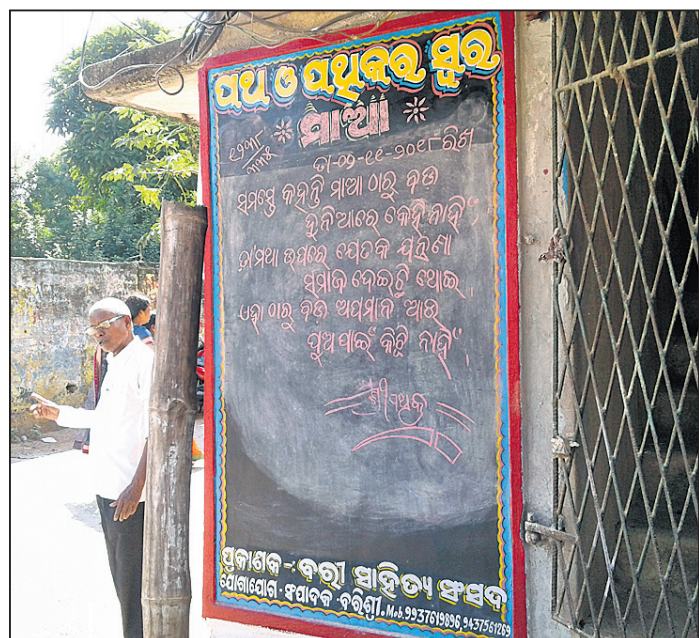 ପଥ ଓ ପଥିକର ସ୍ୱର
ମାଆ
ତା-୦୨-୧୧-୨୦୧୮ରିଖ
ସମସ୍ତେ କହନ୍ତି ମାଆ ଠାରୁ ବଡ
ଦୁନିଆରେ କେହି ନାହିଁ,
ତା'ମଥା ଉପରେ ଯେତକ ଯନ୍ତ୍ରଣା
ସମାଜ ଦେଇଚି ଥୋଇ,
ଏହା ଠାରୁ ବଡ ଅପମାନ ଆଉ
ପୁଅ ପାଇଁ କିଛି ନାହିଁ,
ଶ୍ରୀପଥିକ
ପ୍ରକାଶକ-:ବରୀ ସାହିତ୍ୟ ସଂସଦ
ଯୋଗାଯୋଗ-ସଂପାଦକ-ବରିଶ୍ରୀ.Mob.9937619896,9437561269